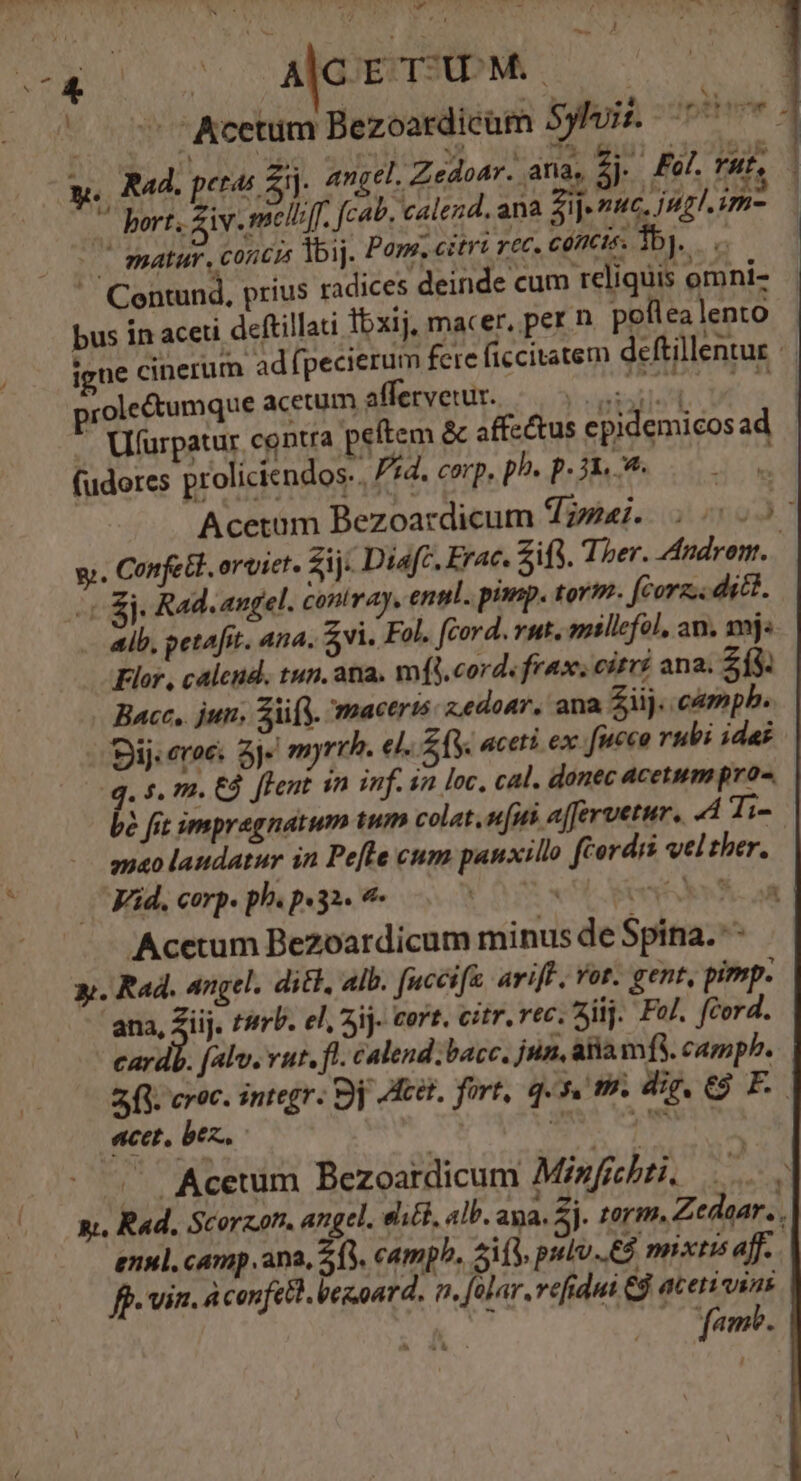 4 ACETUM.
Acetum Bezoardicum Sylvii.
℞. Rad. petas ℥ij. angel. Zedoar. ana, ℥j. Fol. rut,
hort. ℥iv. melliſſ. ſcab. calend. ana ℥ij. nuc. jugl. im-
matur. concis ℔ij. Pom. citri rec. concis. ℔j.
Contund, prius radices deinde cum reliquis omni-
bus in aceti deſtillati ℔xij, macer. per n poſtea lento
igne cinerum ad ſpecierum fere ſiccitatem deſtillentur
prolectumque acetum aſſervetur.
Uſurpatur contra peſtem & affectus epidemicos ad
ſudores proliciendos. Vid. corp. ph. p. 31. a.
Acetum Bezoardicum Timæi.
℞. Confect. orviet. ℥ij. Diaſc. Frac. ℥iß. Ther. Androm.
℥j. Rad. angel. contray. enul. pimp. torm. ſcorz. dict.
alb. petaſit. ana. ℥vi. Fol. ſcord. rut. millefol, an. mj.
Flor, calend. tun. ana. mß. cord. frax. citri ana. ℥ß.
Bacc. jun. ℥iiß. maceris zedoar. ana ℥iij. camph.
℈ij. croc. ʒj. myrrh. el. ℥ß. aceti ex ſucco rubi idæi
q. s. m. & ſtent in inf. in loc. cal. donec acetum pro-
bè ſit impregnatum tum colat. uſui aſſervetur. A Ti-
mæo laudatur in Peſte cum pauxillo ſcordii vel ther.
Vid. corp. ph. p. 32. a.
Acetum Bezoardicum minus de Spina.
℞. Rad. angel. dict. alb. ſucciſæ ariſt. rot. gent, pimp.
ana, ℥iij. turb. el, ʒij. cort. citr. rec. ʒiij. Fol. ſcord.
cardb. ſalv. rut. fl. calend. bacc. jun, ana mß. camph.
ʒß. croc. integr. ℈j Acet. fort, q. s. m. dig. & F.
acet. bez.
Acetum Bezoardicum Minſichti.
℞. Rad. Scorzon. angel. dict. alb. ana. ℥j. torm. Zedoar.
enul. camp. ana, ℥ß. camph. ʒiß. pulv. & mixtis aff.
ſp. vin. à confect. bezoard. n. ſolar. reſidui & aceti vini
ſamb.